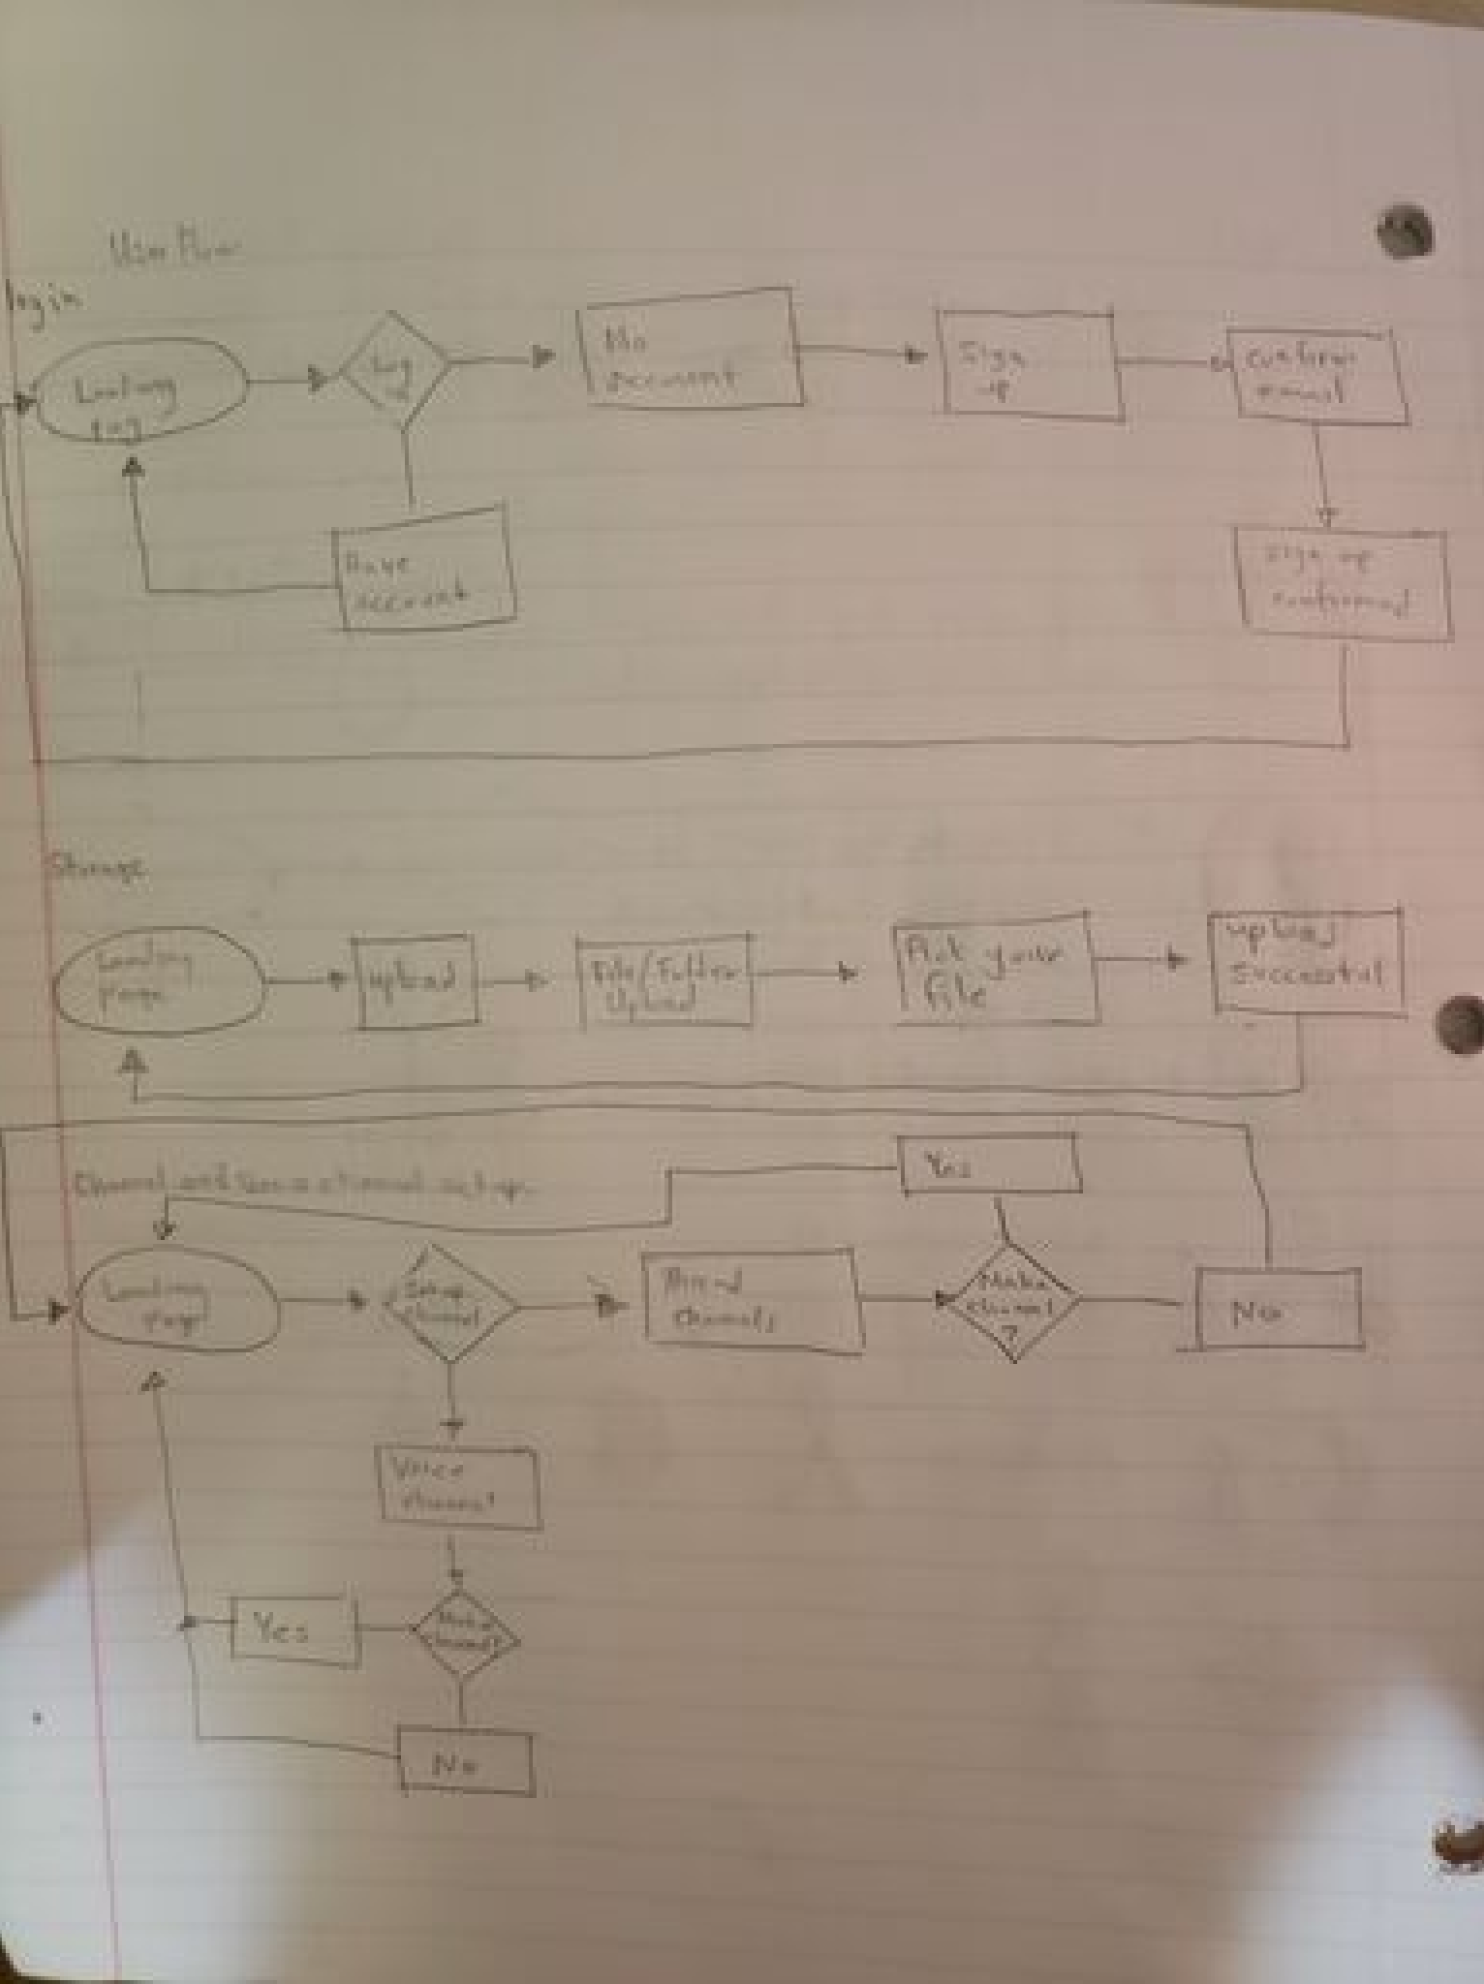 User Flow
login
Landing
pag
Log
No
account
Sign
up
confirm
email
Have
account
sign up
confirmed
Storage
Landing
page
upload
File/Folder
Upload
Pick your
File
upload
successful
Channel and
set up
Yes
Landing
page
Setup
channel
channels
Make
channel
?
No
Voice
channel
Yes
Make
channel?
No